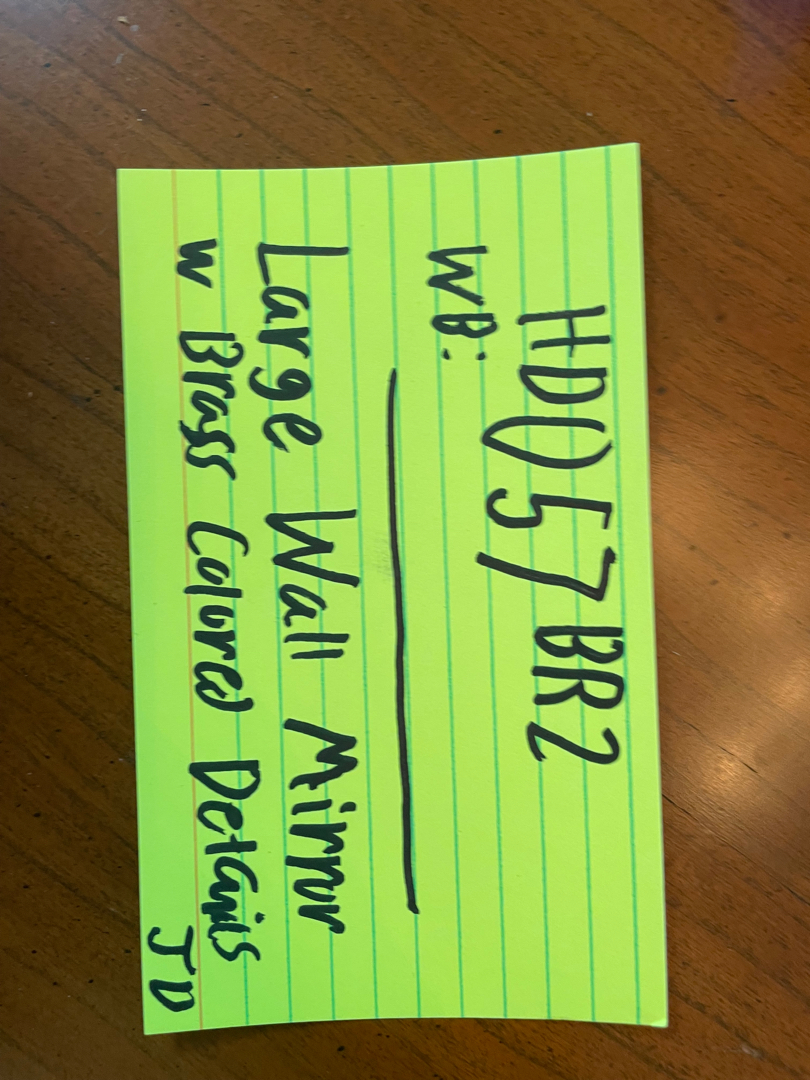 HD057BR2
WB:
Large Wall Mirror
w Brass Colored Details
JD